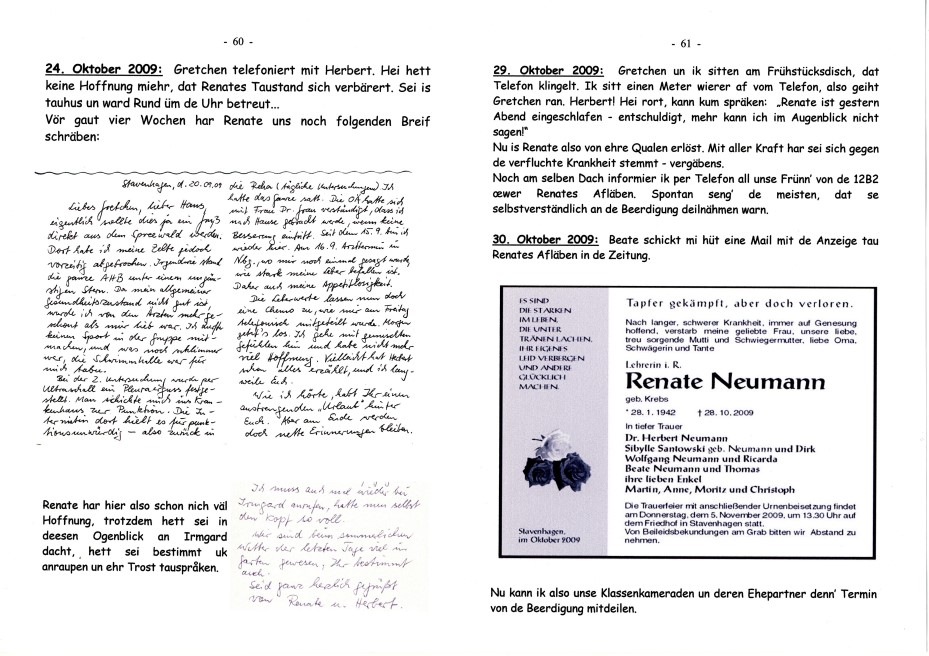 - 60 -
24. Oktober 2009: Gretchen telefoniert mit Herbert. Hei hett
keine Hoffnung miehr, dat Renates Taustand sich verbärert. Sei is
tauhus un ward Rund üm de Uhr betreut...
Vör gaut vier Wochen har Renate uns noch folgenden Breif
schräben:
Stavenhagen, d. 20.09.09
Liebes Gretchen, lieber Hans,
eigentlich sollte dies ja ein Gruß
direkt aus dem Spreewald werden.
Dort habe ich meine Zelte jedoch
vorzeitig abgebrochen. Irgendwie stand
die ganze AHB unter einem ungün-
stigen Stern. Da mein allgemeiner
Gesundheitszustand nicht gut ist,
wurde ich von den Ärzten mehr ge-
schont als mir lieb war. Ich durfte
keinen Sport in der Gruppe mit-
machen, und was noch schlimmer
war, die Schwimmhalle war für
mich tabu.
Bei der 2. Untersuchung wurde per
Ultraschall ein Pleuraerguss festge-
stellt. Man schickte mich ins Kran-
kenhaus zur Punktion. Die In-
ternistin dort hielt es für punk-
tionsunwürdig – also zurück in
die Reha (tägliche Untersuchungen) Ich
hatte das ganze satt. Die OÄ hatte sich
mit Frau Dr. Grau verständigt, dass ich
nach Hause gebracht werde, wenn keine
Besserung eintritt. Seit dem 15.9. bin ich
wieder hier. Am 16.9. Arzttermin in
Nbg., wo mir noch einmal gesagt wurde,
wie stark meine Leber befallen ist.
Daher auch meine Appetitlosigkeit.
Die Leberwerte lassen nun doch
eine Chemo zu, wie mir am Freitag
telefonisch mitgeteilt wurde. Morgen
geht's los. Ich gehe mit gemischten
Gefühlen hin und habe nicht mehr
viel Hoffnung. Vielleicht hat Herbert
schon alles erzählt, und ich lang-
weile Euch.
Wie ich hörte, habt Ihr einen
anstrengenden „Urlaub" hinter
Euch. Aber am Ende werden
doch nette Erinnerungen bleiben.
Renate har hier also schon nich väl
Hoffnung, trotzdem hett sei in
deesen Ogenblick an Irmgard
dacht, hett sei bestimmt uk
anraupen un ehr Trost tauspråken.
Ich muss auch mal wieder bei
Irmgard anrufen, hatte nun selbst
den Kopf so voll.
Wir sind beim sommerlichen
Wetter der letzten Tage viel im
Garten gewesen, Ihr bestimmt
auch.
Seid ganz herzlich gegrüßt
von Renate u. Herbert.
- 61 -
29. Oktober 2009: Gretchen un ik sitten am Frühstücksdisch, dat
Telefon klingelt. Ik sitt einen Meter wierer af vom Telefon, also geiht
Gretchen ran. Herbert! Hei rort, kann kum spräken: „Renate ist gestern
Abend eingeschlafen - entschuldigt, mehr kann ich im Augenblick nicht
sagen!"
Nu is Renate also von ehre Qualen erlöst. Mit aller Kraft har sei sich gegen
de verfluchte Krankheit stemmt - vergäbens.
Noch am selben Dach informier ik per Telefon all unse Frünn' von de 12B2
œwer Renates Afläben. Spontan seng' de meisten, dat se
selbstverständlich an de Beerdigung deilnähmen warn.
30. Oktober 2009: Beate schickt mi hüt eine Mail mit de Anzeige tau
Renates Afläben in de Zeitung.
ES SIND
DIE STARKEN
IM LEBEN,
DIE UNTER
TRÄNEN LACHEN,
IHR EIGENES
LEID VERBERGEN
UND ANDERE
GLÜCKLICH
MACHEN.
Stavenhagen,
im Oktober 2009
Tapfer gekämpft, aber doch verloren.
Nach langer, schwerer Krankheit, immer auf Genesung
hoffend, verstarb meine geliebte Frau, unsere liebe,
treu sorgende Mutti und Schwiegermutter, liebe Oma,
Schwägerin und Tante
Lehrerin i. R.
Renate Neumann
geb. Krebs
* 28. 1. 1942 † 28. 10. 2009
In tiefer Trauer
Dr. Herbert Neumann
Sibylle Santowski geb. Neumann und Dirk
Wolfgang Neumann und Ricarda
Beate Neumann und Thomas
ihre lieben Enkel
Martin, Anne, Moritz und Christoph
Die Trauerfeier mit anschließender Urnenbeisetzung findet
am Donnerstag, dem 5. November 2009, um 13.30 Uhr auf
dem Friedhof in Stavenhagen statt.
Von Beileidsbekundungen am Grab bitten wir Abstand zu
nehmen.
Nu kann ik also unse Klassenkameraden un deren Ehepartner denn' Termin
von de Beerdigung mitdeilen.